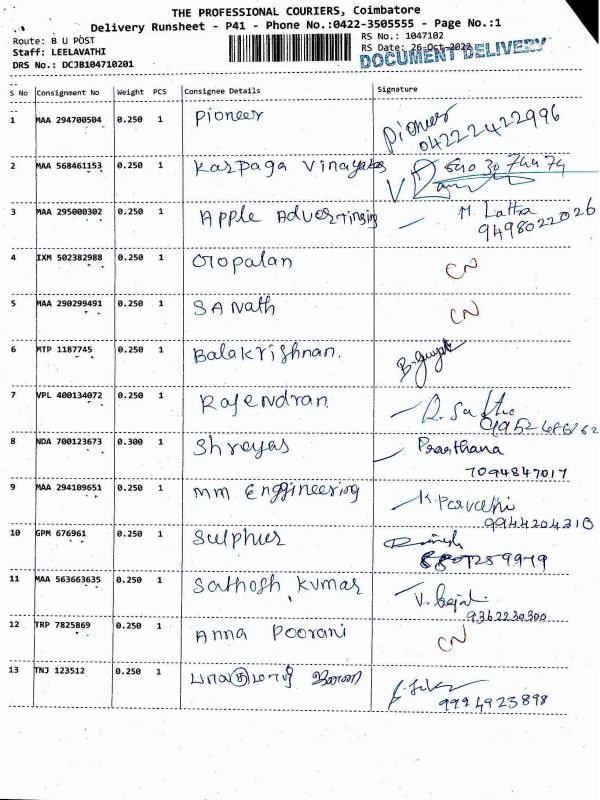 THE PROFESSIONAL COURIERS, Coimbatore
Delivery Runsheet - P41 - Phone No.:0422-3505555 - Page No.:1
Route: B U POST
RS No.: 1047102
Staff: LEELAVATHI
RS Date: 26-Oct-2022
DRS No.: DCJB104710201
DOCUMENT DELIVERY
S No Consignment No Weight PCS Consignee Details Signature
1 MAA 294700504 0.250 1 Pioneer Pioneer
04222422996
2 MAA 568461153 0.250 1 Karpaga Vinayakas
3 MAA 295000302 0.250 1 Apple Advertinsing M. Latha
9498022026
4 IXM 502382988 0.250 1 Gopalan CN
5 MAA 290299491 0.250 1 SANath CN
6 MTP 1187745 0.250 1 Balakrishnan.
7 VPL 400134072 0.250 1 Rajendran
8 NDA 700123673 0.300 1 Shreyas Prarthana
7094847017
9 MAA 294109651 0.250 1 MM Enggineering K. Parvathi
9944204310
10 GPM 676961 0.250 1 Sulphur
11 MAA 563663635 0.250 1 Sathosh Kumar
9362230300
12 TRP 7825869 0.250 1 Anna Poorani CN
13 TNJ 123512 0.250 1
9994923898